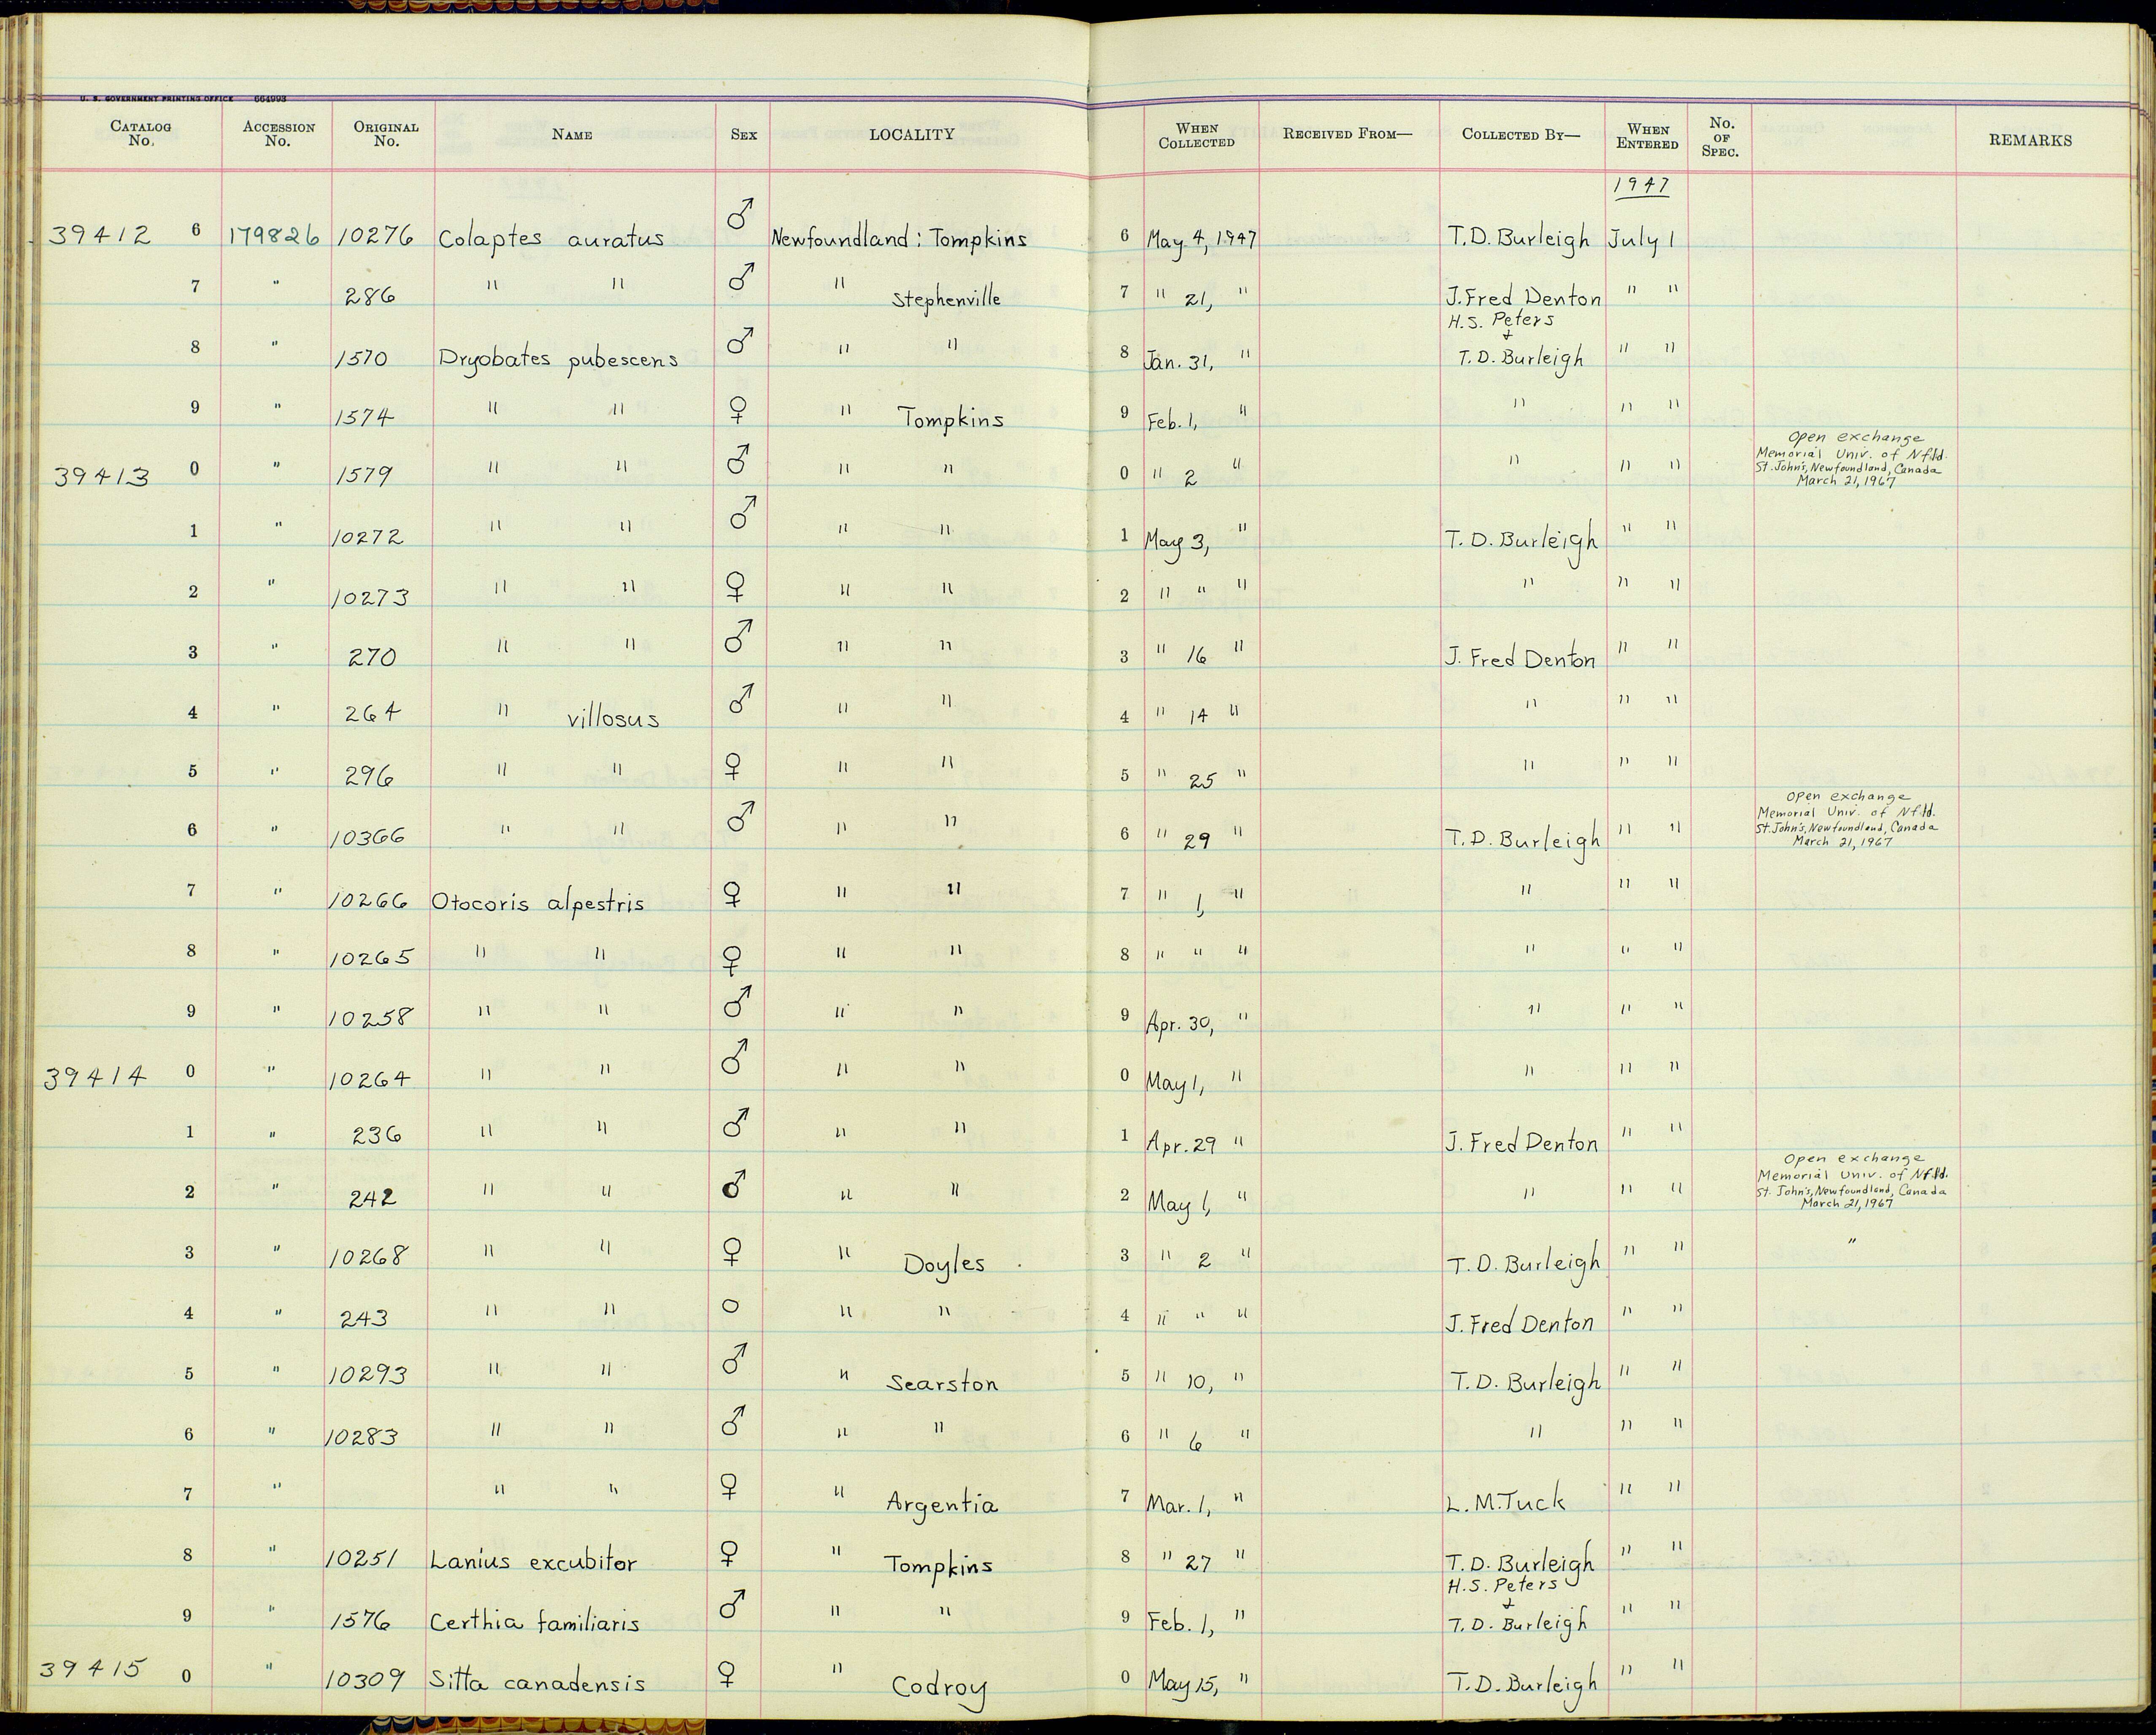 U. S. GOVERNMENT PRINTING OFFICE 664993
CATALOG No. ACCESSION No. ORIGINAL No. NAME SEX LOCALITY WHEN COLLECTED RECEIVED FROM— COLLECTED BY— WHEN ENTERED No. OF SPEC. REMARKS
1947
39412 6 179826 10276 Colaptes auratus ♂ Newfoundland: Tompkins 6 May 4, 1947 T.D. Burleigh July 1
7 " 286 " " ♂ " Stephenville 7 " 21, " J. Fred Denton " "
8 " 1570 Dryobates pubescens ♂ " " 8 Jan. 31, " H.S. Peters + T.D. Burleigh " "
9 " 1574 " " ♀ " Tompkins 9 Feb. 1, " " " "
39413 0 " 1579 " " ♂ " " 0 " 2 " " " " Open exchange Memorial Univ. of Nfld. St. John's, Newfoundland, Canada March 21, 1967
1 " 10272 " " ♂ " " 1 May 3, " T. D. Burleigh " "
2 " 10273 " " ♀ " " 2 " " " " " "
3 " 270 " " ♂ " " 3 " 16 " J. Fred Denton " "
4 " 264 " villosus ♂ " " 4 " 14 " " " "
5 " 296 " " ♀ " " 5 " 25 " " " "
6 " 10366 " " ♂ " " 6 " 29 " T. D. Burleigh " " Open exchange Memorial Univ. of Nfld. St. John's, Newfoundland, Canada March 21, 1967
7 " 10266 Otocoris alpestris ♀ " " 7 " 1, " " " "
8 " 10265 " " ♀ " " 8 " " " " " "
9 " 10258 " " ♂ " " 9 Apr. 30, " " " "
39414 0 " 10264 " " ♂ " " 0 May 1, " " " "
1 " 236 " " ♂ " " 1 Apr. 29 " J. Fred Denton " "
2 " 242 " " ♂ " " 2 May 1, " " " " Open exchange Memorial Univ. of Nfld. St. John's, Newfoundland, Canada March 21, 1967
3 " 10268 " " ♀ " Doyles 3 " 2 " T. D. Burleigh " " "
4 " 243 " " O " " 4 " " " J. Fred Denton " "
5 " 10293 " " ♂ " Searston 5 " 10, " T. D. Burleigh " "
6 " 10283 " " ♂ " " 6 " 6 " " " "
7 " " " ♀ " Argentia 7 Mar. 1, " L. M. Tuck " "
8 " 10251 Lanius excubitor ♀ " Tompkins 8 " 27 " T. D. Burleigh " "
9 " 1576 Certhia familiaris ♂ " " 9 Feb. 1, " H.S. Peters + T. D. Burleigh " "
39415 0 " 10309 Sitta canadensis ♀ " Codroy 0 May 15, " T. D. Burleigh " "